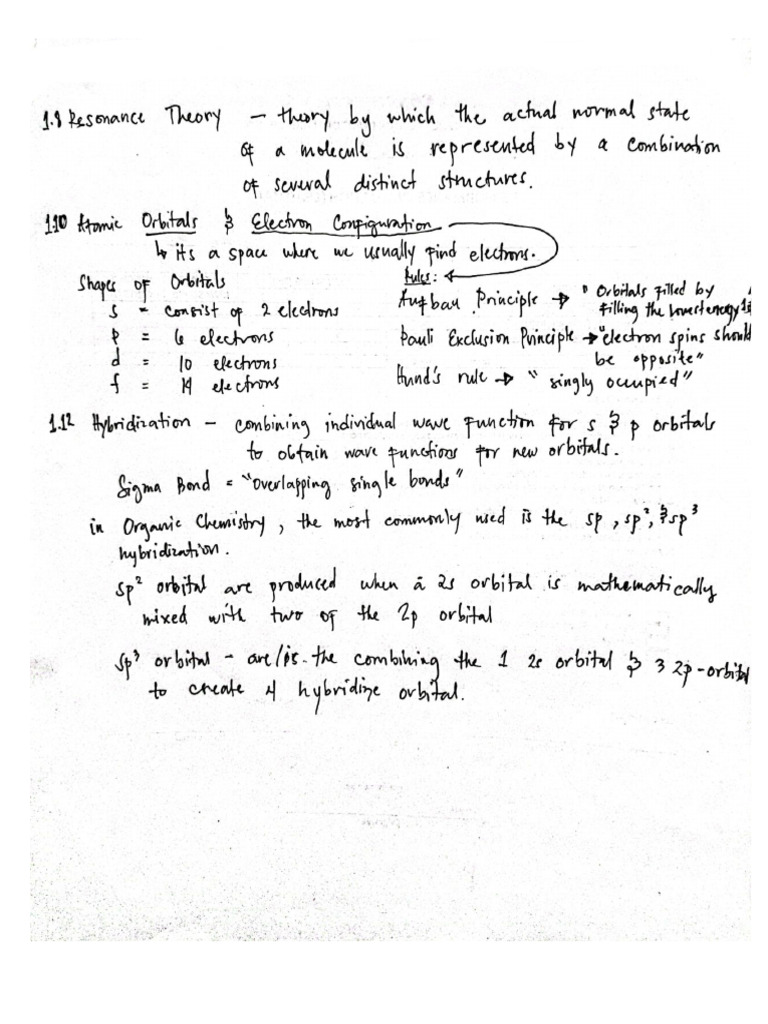 1.8 Resonance Theory – theory by which the actual normal state
of a molecule is represented by a combination
of several distinct structures.
1.10 Atomic Orbitals & Electron Configuration
↳ its a space where we usually find electrons.
Shapes of Orbitals
s - consist of 2 electrons
p = 6 electrons
d = 10 electrons
f = 14 electrons
Rules:
Aufbau Principle → " Orbitals filled by
filling the lowest energy 1s
Pauli Exclusion Principle → "electron spins should
be opposite"
Hund's rule → " singly occupied"
1.12 Hybridization – combining individual wave function for s & p orbitals
to obtain wave functions for new orbitals.
Sigma Bond = "overlapping single bonds"
in Organic Chemistry, the most commonly used is the sp, sp², & sp³
hybridization.
sp² orbital are produced when a 2s orbital is mathematically
mixed with two of the 2p orbital
sp³ orbital - are/is the combining the 1 2s orbital & 3 2p-orbital
to create 4 hybridize orbital.